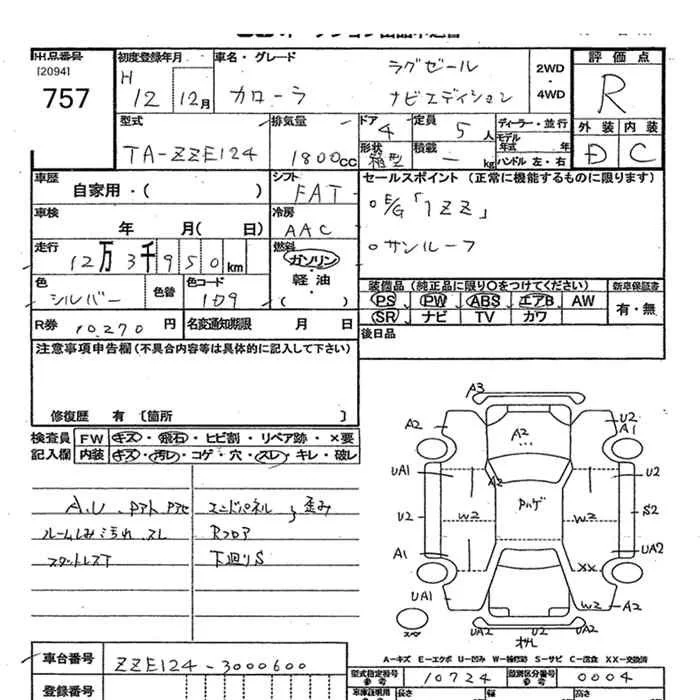 出品番号
[2094]
757
初度登録年月
H 12 12月
車名・グレード
カローラ
ラグゼール
ナビエディション
2WD
・
4WD
評価点
R
外装 内装
D C
型式
TA-ZZE124
排気量
1800cc
ドア
4
形状
箱型
定員
5人
積載
— kg
ディーラー・並行
モデル年式 年
ハンドル 左・右
車歴
自家用・( )
シフト
FAT
車検
年 月( 日)
冷房
AAC
走行
12万3千950km
燃料
ガソリン
・
軽油
・
( )
色
シルバー
色替
色コード
1D9
R券
10,270円
名変通知期限 月 日
セールスポイント (正常に機能するものに限ります)
○E/G「1ZZ」
○サンルーフ
装備品(純正品に限り○をつけてください)
PS PW ABS エアB AW
SR ナビ TV カワ
新車保証書
有・無
後日品
注意事項申告欄(不具合内容等は具体的に記入して下さい)
修復歴 有 〔箇所 〕
検査員記入欄
FW キズ・飛石・ヒビ割・リペア跡・×要
内装 キズ・汚レ・コゲ・穴・スレ・キレ・破レ
エンドパネル 歪み
Rフロア
下廻りS
A3
A2
A2
U2
A1
UA1
A2
U2
U2
W2
Pハゲ
W2
S2
A1
UA2
XX
UA1
W2
A2
スペア
UA2
U2
UA2
A-キズ E-エクボ U-凹み W-補修跡 S-サビ C-腐食 XX-交換済
車台番号
ZZE124-3000600
型式指定番号
参考
10724
類別区分番号
参考
0004
登録番号
長さ
幅
高さ